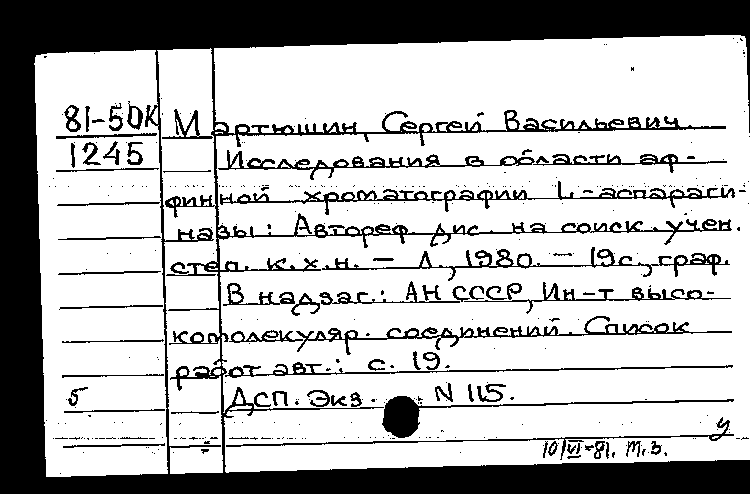 81-5ДК Мартюшин, Сергей Васильевич.
1245 Исследования в области аф-
финной хроматографии L-аспараги-
назы: Автореф. дис. на соиск. учен.
степ. к.х.н. - Л., 1980. - 19с., граф.
В надзаг.: АН СССР, Ин-т высо-
комолекуляр. соединений. Список
работ авт.: с. 19.
5 ДСП. Экз. N 115.
у
10/VI-81. М.З.